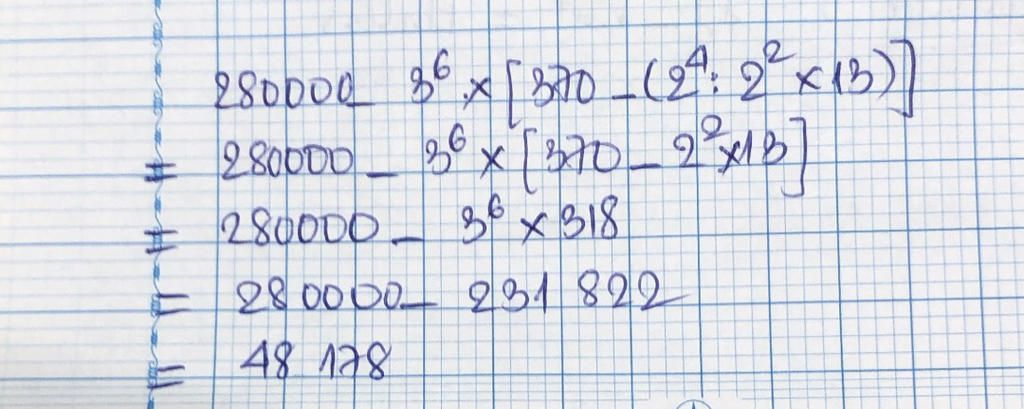 280000 - 3⁶ × [370 - (2⁴ : 2² × 13)]
= 280000 - 3⁶ × [370 - 2² × 13]
= 280000 - 3⁶ × 318
= 280000 - 231 822
= 48 178